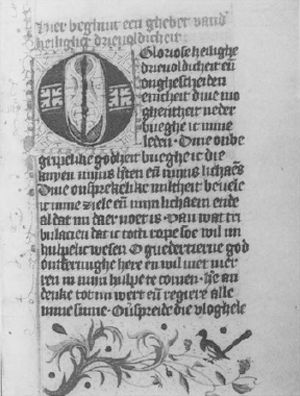 Hier beghint een ghebet vand
heiligher drievoldicheit
O Gloriose heilighe
drievoldicheit eñ
ongescheiden
enicheit dine mo
ghentheit neder
bueghe ic mine
leden · Dine onbe
gripelike godheit bueghe ic die
knyen mijns h'ten eñ mijns lichaēs
Dine onsprekelike miltheit bevele
ic mine ziele eñ mijn lichaem ende
al dat mi daer noet is · Van wat tri
bulacien dat ic totti rope soe wil mi
hulpelic wesen O guedertierne god
ontfermighe here en wil niet mer
ren in mijn hulpe te comen · h'e an
denke tot mi wert eñ regiere alle
mine sinne · Onspreide die vloghele